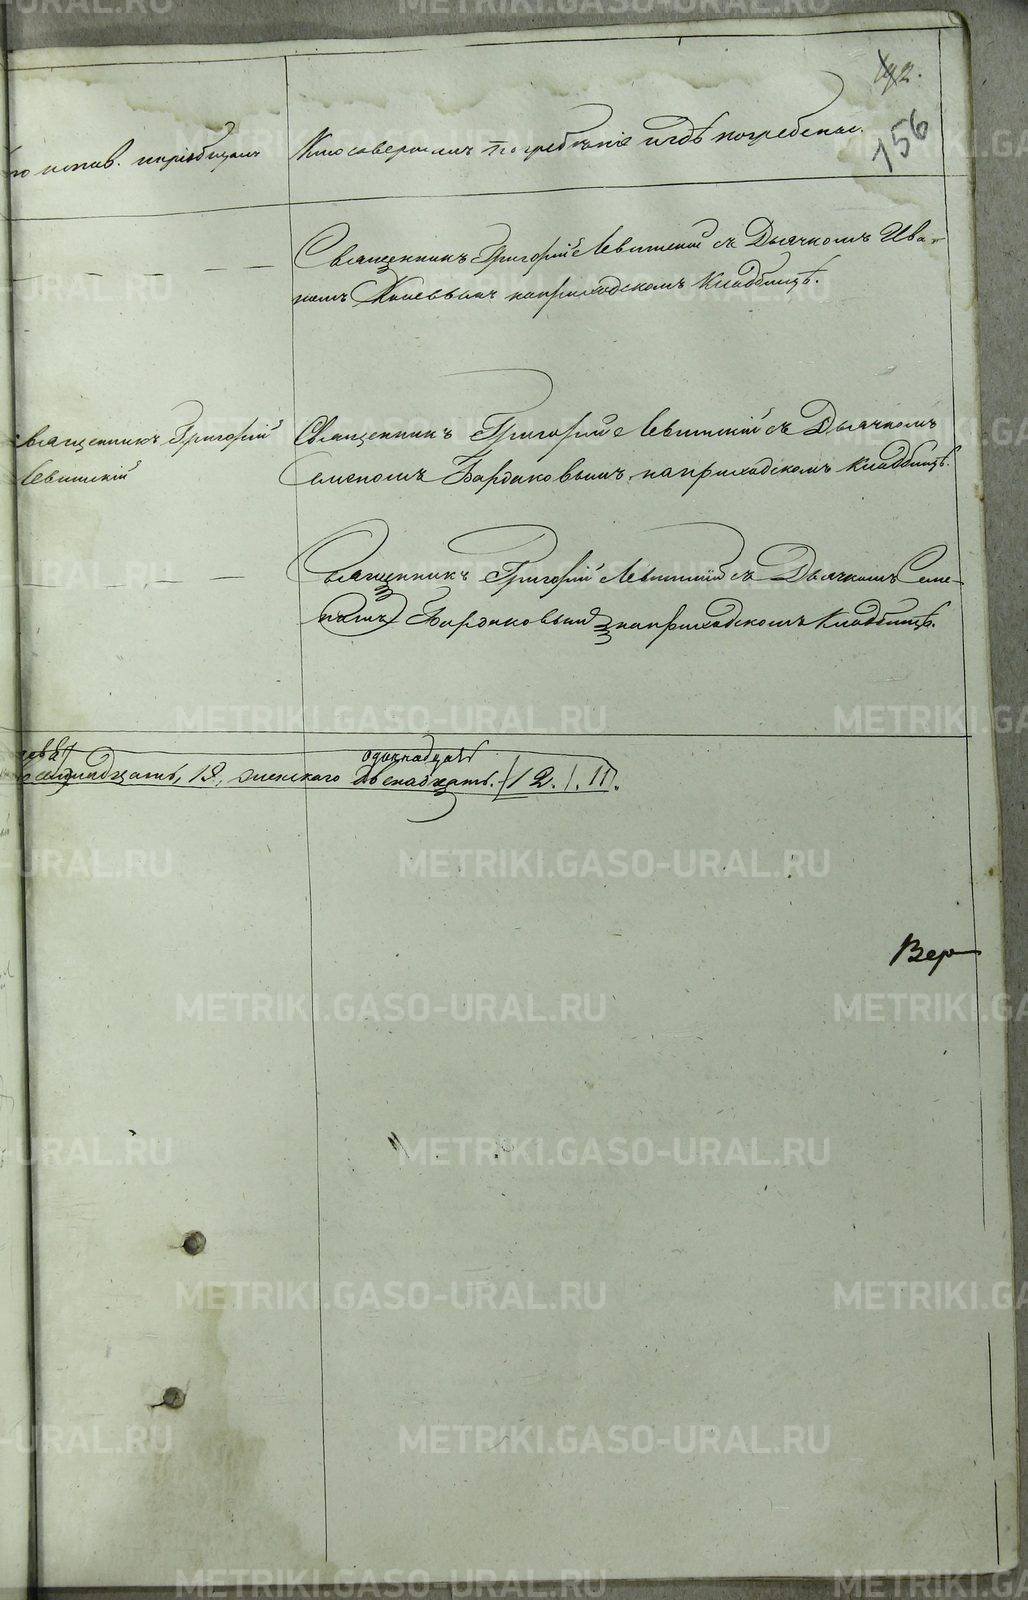 192.
156
то испов. и пріобщалъ
Кто совершалъ погребеніе и гдѣ погребены.
Священникъ Григорій Левитскій съ Дьячкомъ Ива-
номъ на приходскомъ кладбищѣ.
Священникъ Григорій
Левитскій
Священникъ Григорій Левитскій съ Дьячкомъ
Семеномъ Бардаковымъ на приходскомъ кладбищѣ.
Священникъ Григорій Левитскій съ Дьячкомъ Семе-
номъ Бардаковымъ на приходскомъ кладбищѣ.
одинадцать
женскаго двенадцать. 12. 11.
Вер
METRIKI.GASO-URAL.RU